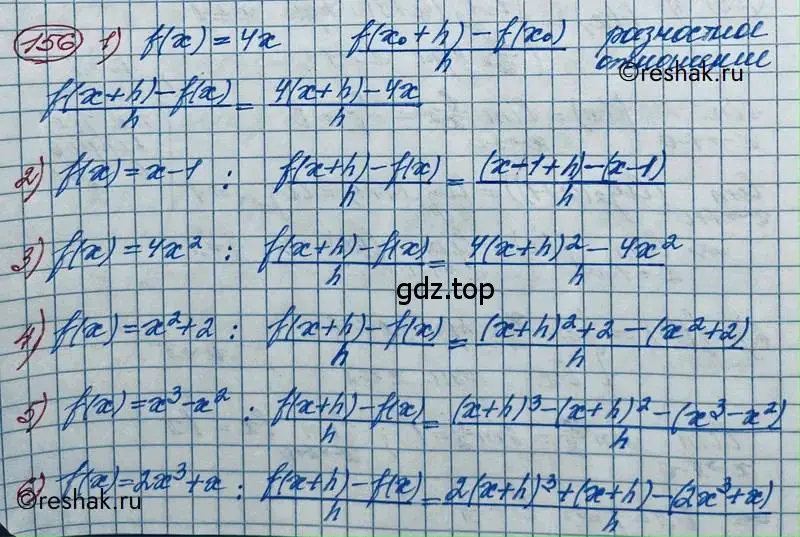 156 1) f(x) = 4x (f(x₀+h) - f(x₀))/h разностное отношение
©reshak.ru
(f(x+h) - f(x))/h = (4(x+h) - 4x)/h
2) f(x) = x-1 : (f(x+h) - f(x))/h = ((x-1+h) - (x-1))/h
3) f(x) = 4x² : (f(x+h) - f(x))/h = (4(x+h)² - 4x²)/h
gdz.top
4) f(x) = x²+2 : (f(x+h) - f(x))/h = ((x+h)² + 2 - (x²+2))/h
5) f(x) = x³-x² : (f(x+h) - f(x))/h = ((x+h)³ - (x+h)² - (x³-x²))/h
6) f(x) = 2x³+x : (f(x+h) - f(x))/h = (2(x+h)³ + (x+h) - (2x³+x))/h
©reshak.ru